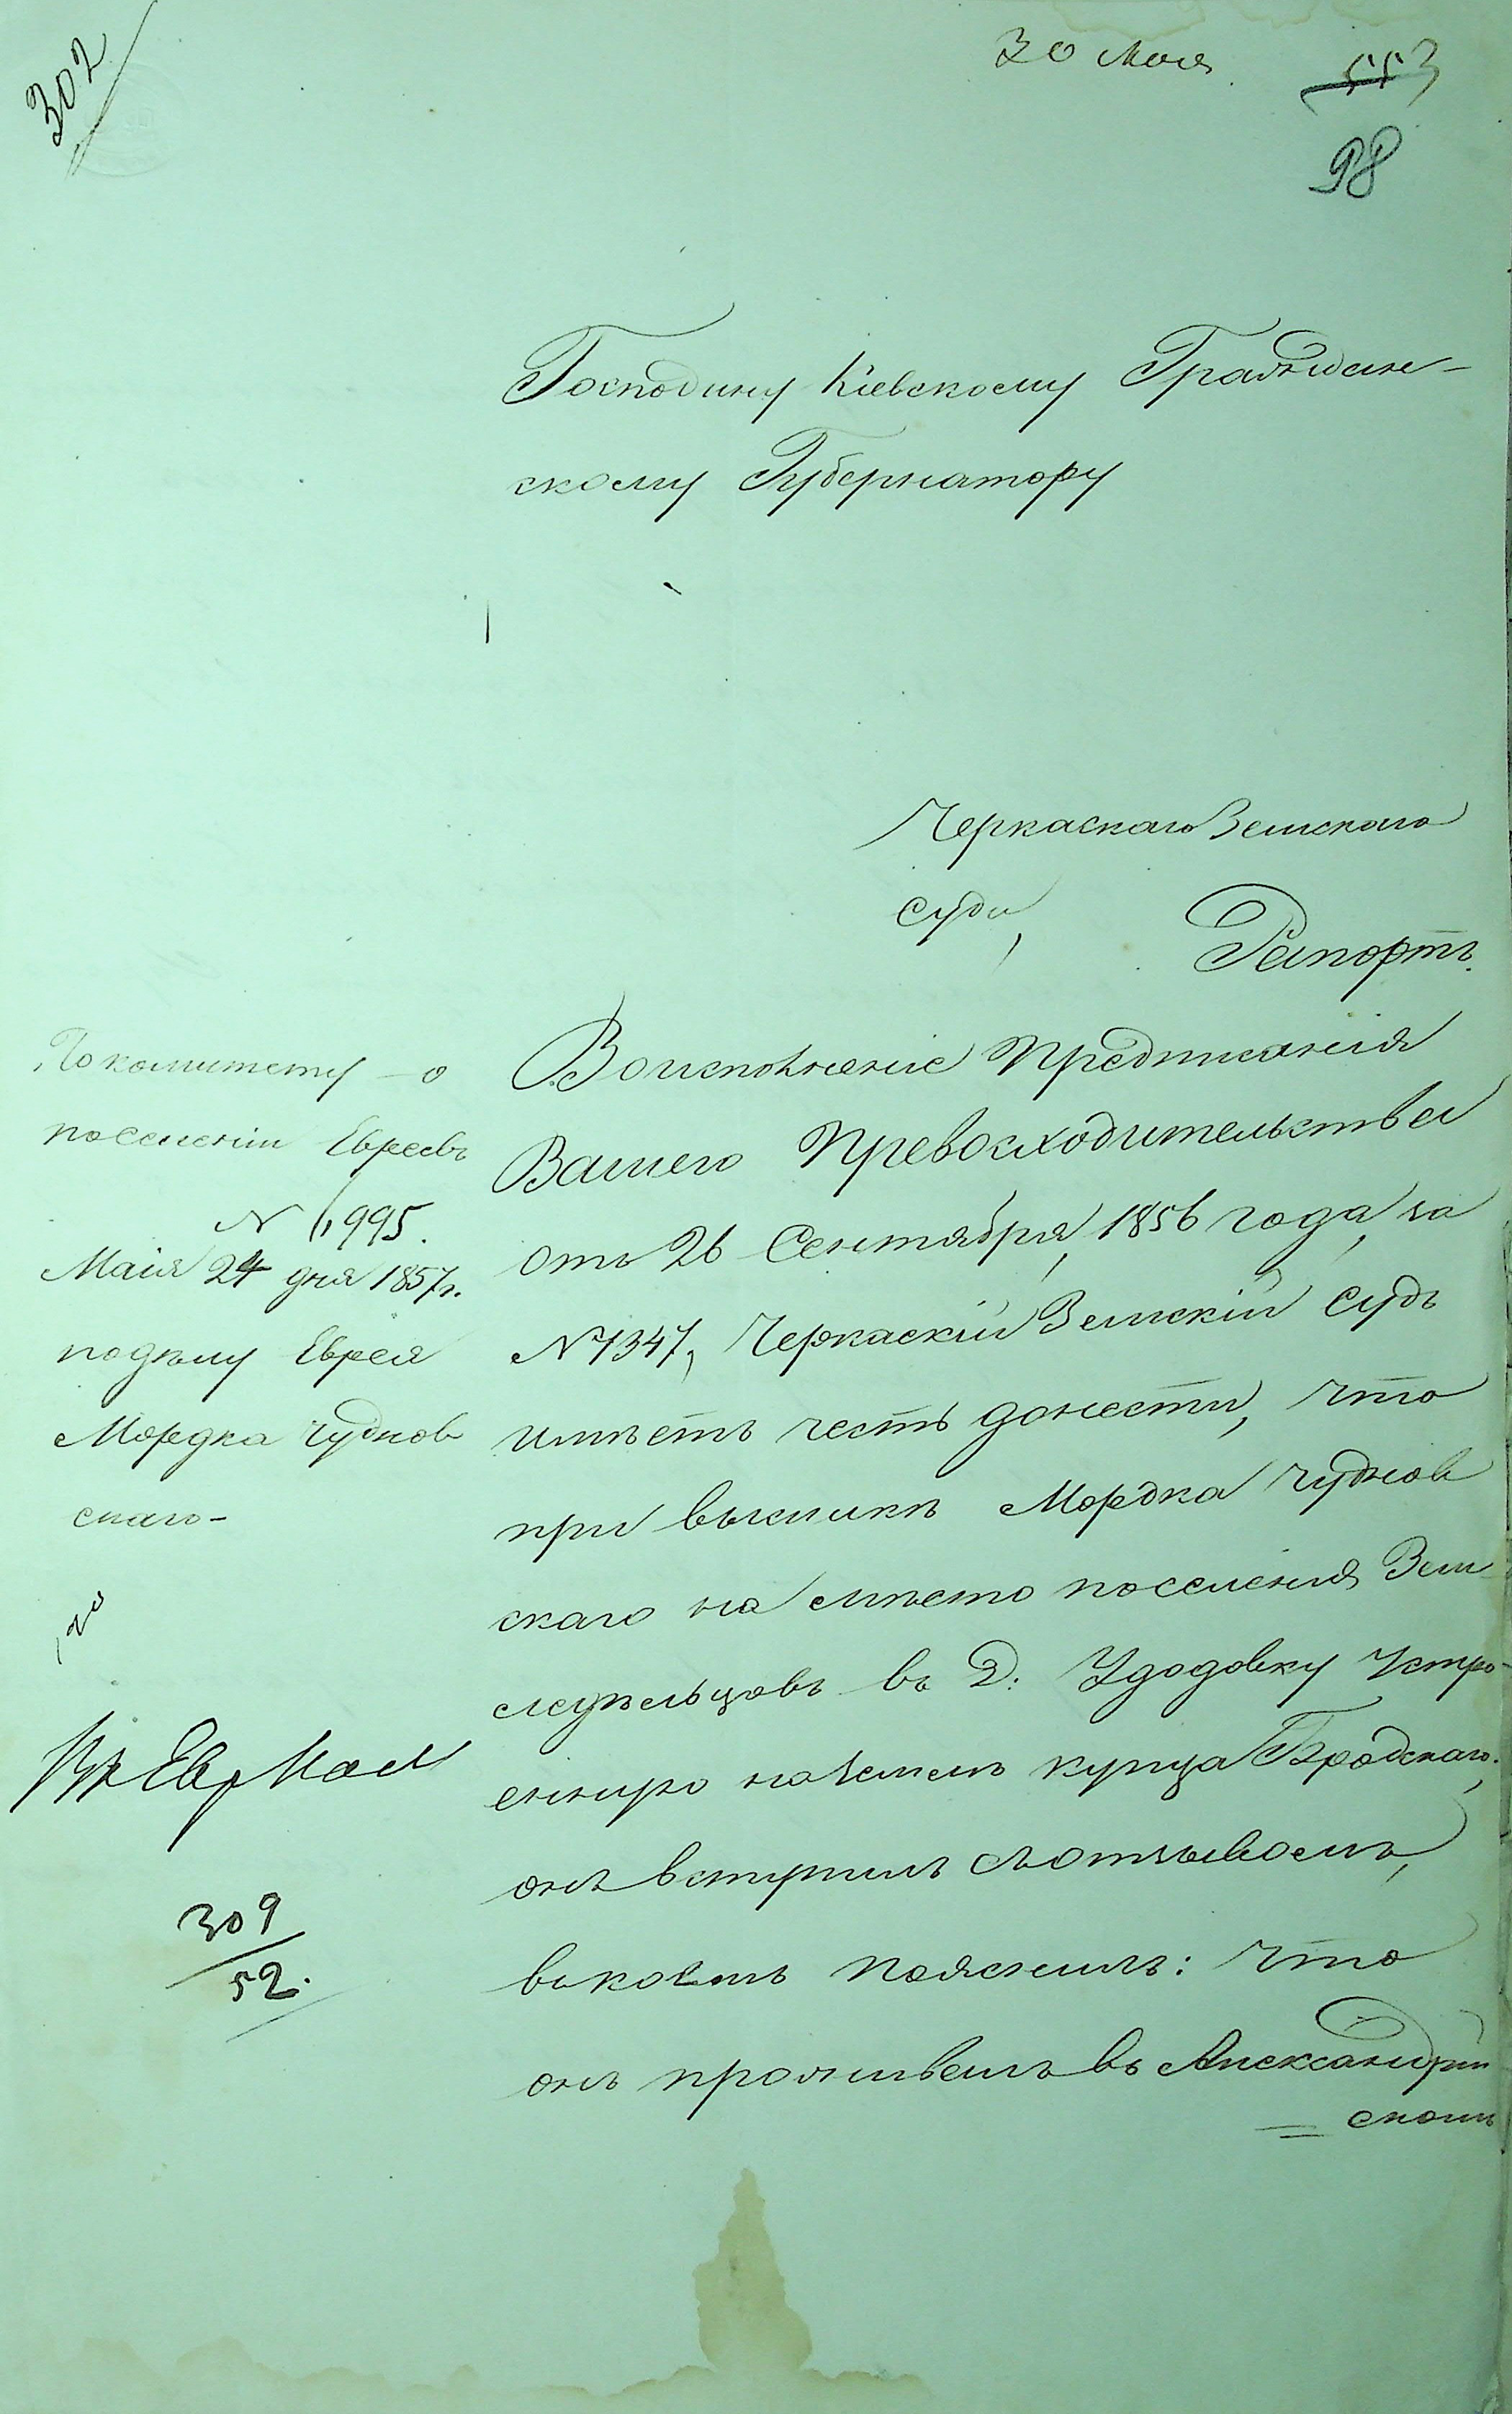 302
30 Мая
553
98
Господину Кіевскому Граждан-
скому Губернатору
Черкаскаго Земскаго
Суда,
Рапортъ.
По комитету о
поселеніи Евреевъ
N 6,995.
Маія 24 дня 1857 г.
подѣлу Еврея
Мордка Чуднов
скаго-
309
52.
Воисполненіе Предписанія
Вашего Превосходительства
отъ 26 Сентября, 1856 года, за
N 1347, Черкаскій Земскій Судъ
имѣетъ честь донести, что
при высылкѣ Мордка Чуднов
скаго на мѣсто поселенія Зем
ледѣльцовъ въ Д: Удодовку Устро-
енную наземлѣ купца Бродскаго.
онъ вступилъ съотзывомъ,
въкоемъ пояснилъ: что
онъ проживалъ въ Александрій
= скомъ